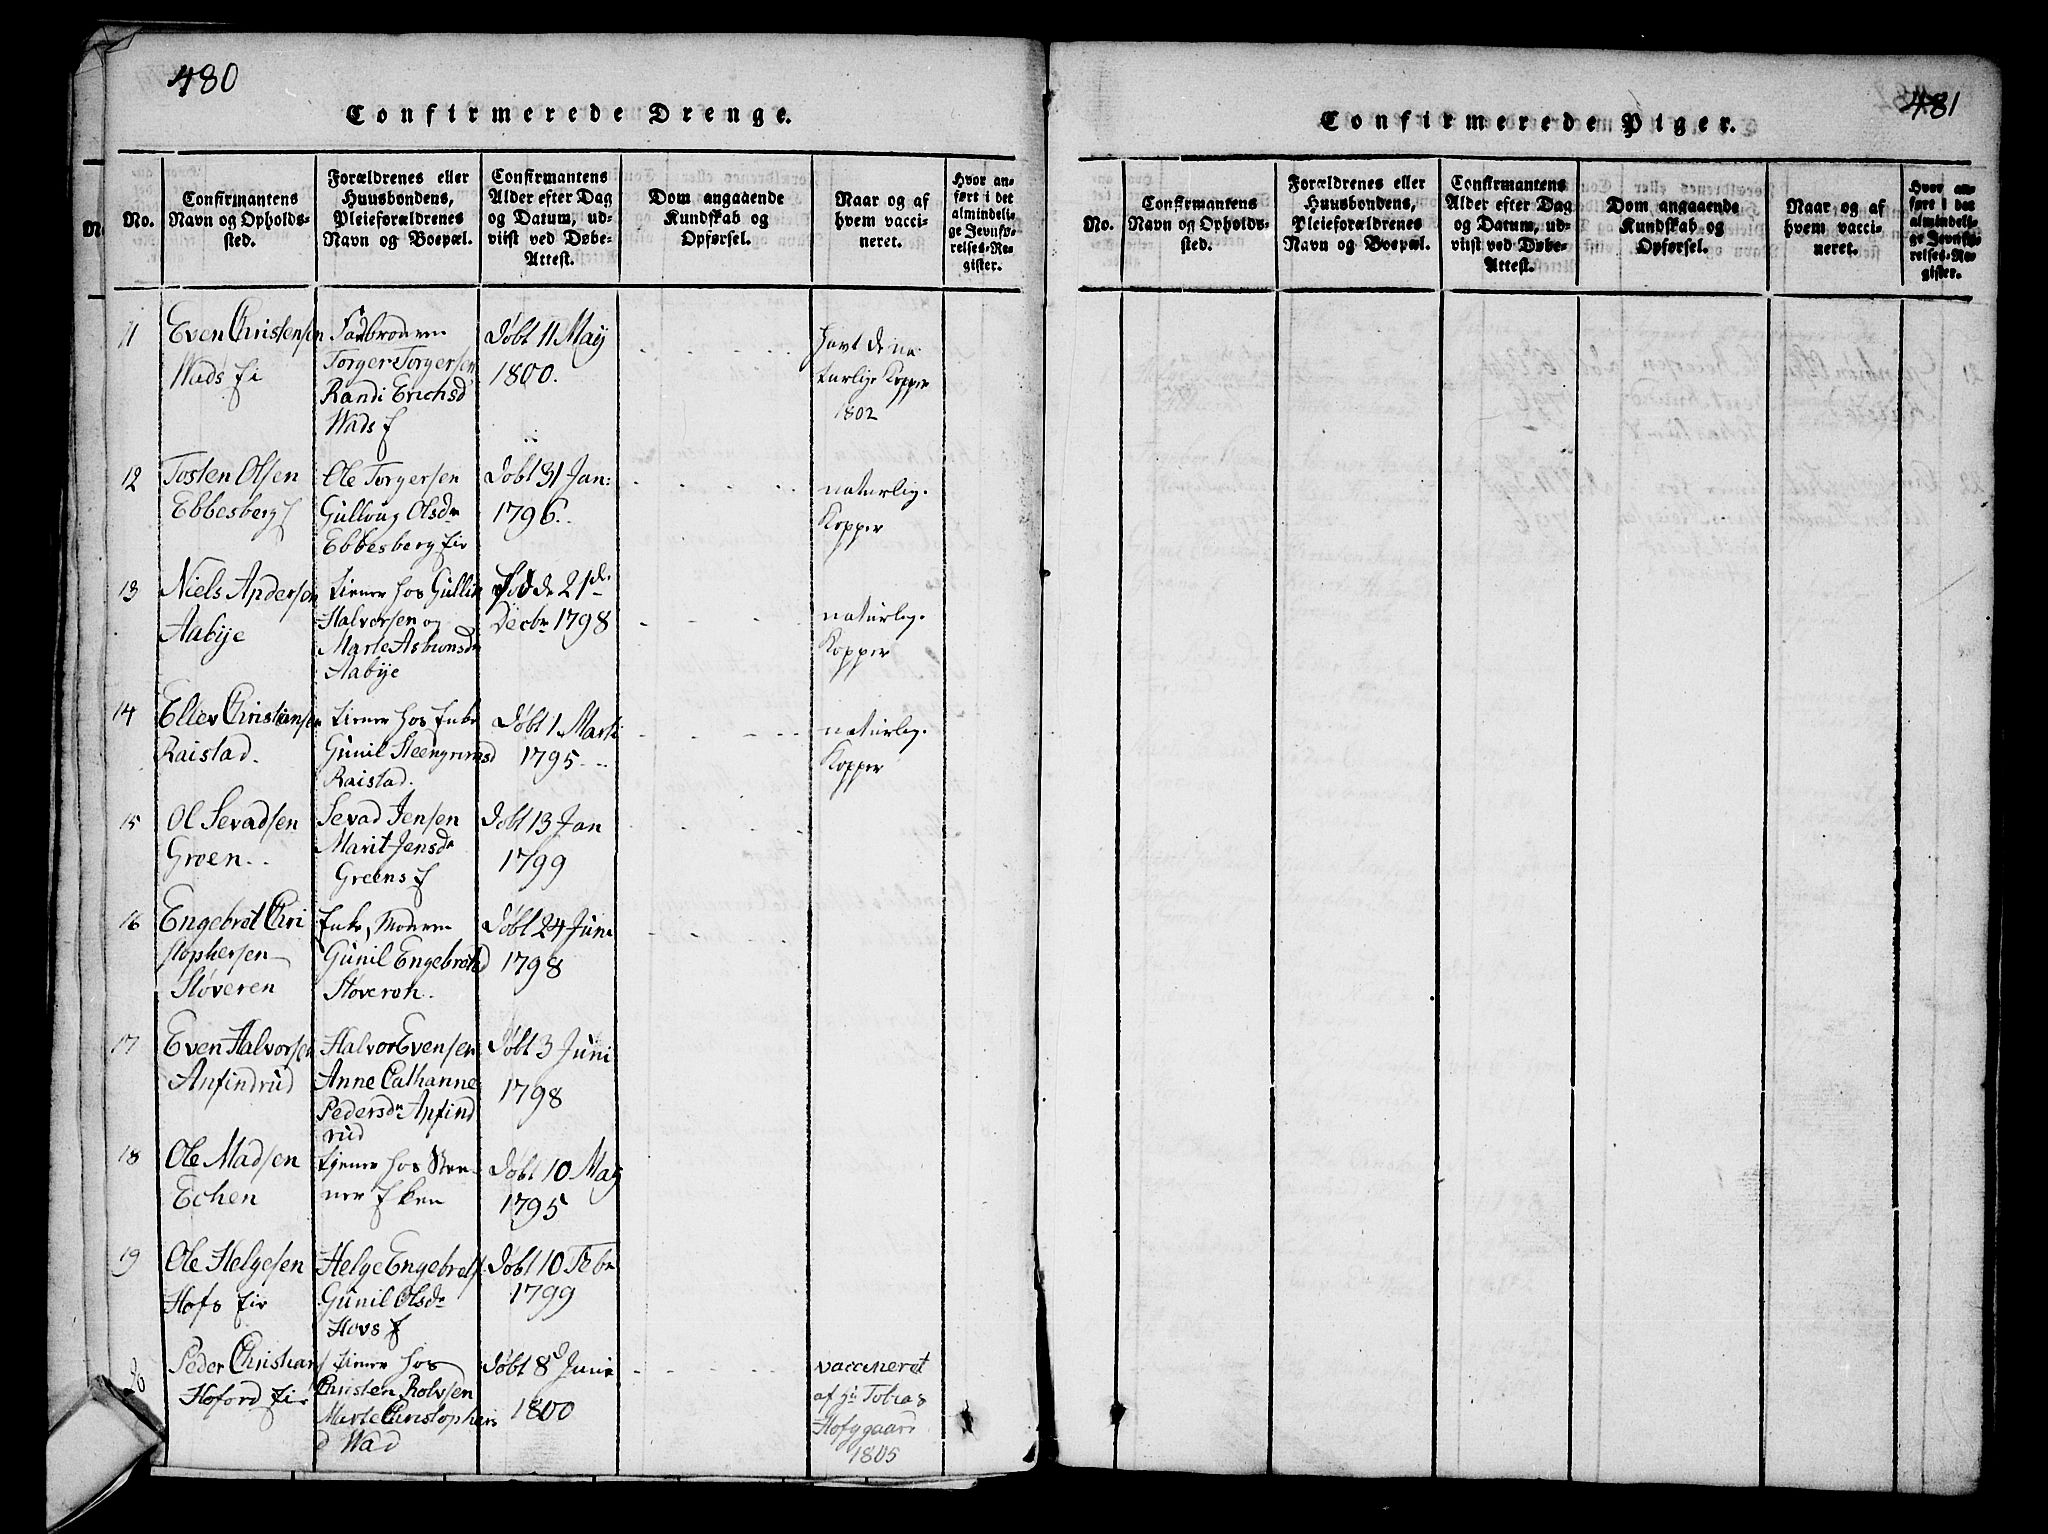 480
Confirmerede Drenge.
No.
Confirmantens
Navn og Opholds-
sted.
Forældrenes eller
Huusbondens,
Pleieforældrenes
Navn og Boepæl.
Confirmantens
Alder efter Dag
og Datum, ud-
viist ved Døbe-
Attest.
Dom angaaende
Kundskab og
Opførsel.
Naar og af
hvem vacci-
neret.
Hvor an-
ført i det
almindeli-
ge Jevnfø-
relses-Re-
gister.
11
Even Christensen
Wads
Torger Torgersen
Randi Erichsd
Wads
Døbt 11 May
1800.
havt de na
turlige Kopper
1802
12
Tosten Olsen
Ebbesberg
Ole Torgersen
Gulloug Olsdr
Ebbesberg
Døbt 31 Jan:
1796.
naturlig.
Kopper
13
Niels Andersen
Aabye
tiener hos Gullin
Halvorsen og
Marte Asbiønsdr
Aabye
Fød de 21de
Decbr 1798
naturlig.
Kopper
14
Ellev Christiansen
Raistad.
tiener hos Enke
Gunil Steengrimsd
Raistad.
Døbt 1 Marti
1795
naturlig.
Kopper
15
Ol Sevadsen
Groen
Sevad Jensen
Marit Jensdr
Greens
Døbt 13 Jan
1799
16
Engebret Chri
stophersen
Støveren
Enke, Moderen
Gunil Engebretsd
Støveren.
Døbt 24 Juni
1798
17
Even Halvorsen
Anfindrud
Halvor Evensen
Anne Cathanne
Pedersdr Anfind
rud
Døbt 3 Juni
1798
18
Ole Madsen
Echen
tjener hos
Døbt 10 May
1795
19
Ole Helgesen
Hofs
Helge Engebrets
Gunil Olsdr
Hovs
Døbt 10 Febr
1799
Peder Christians
Hoford
tiener hos
Christen Rolvsen
Marte Christophers
d Wad
Døbt 8d Junii
1800
vaccineret
af Tobias
Hofgaard
1805
481
Confirmerede Piger.
No.
Confirmantens
Navn og Opholds-
sted.
Forældrenes eller
Huusbondens,
Pleieforældrenes
Navn og Boepæl.
Confirmantens
Alder efter Dag
og Datum, ud-
viist ved Døbe-
Attest.
Dom angaaende
Kundskab og
Opførsel.
Naar og af
hvem vacci-
neret.
Hvor an-
ført i det
almindeli-
ge Jevnfø-
relses-Re-
gister.